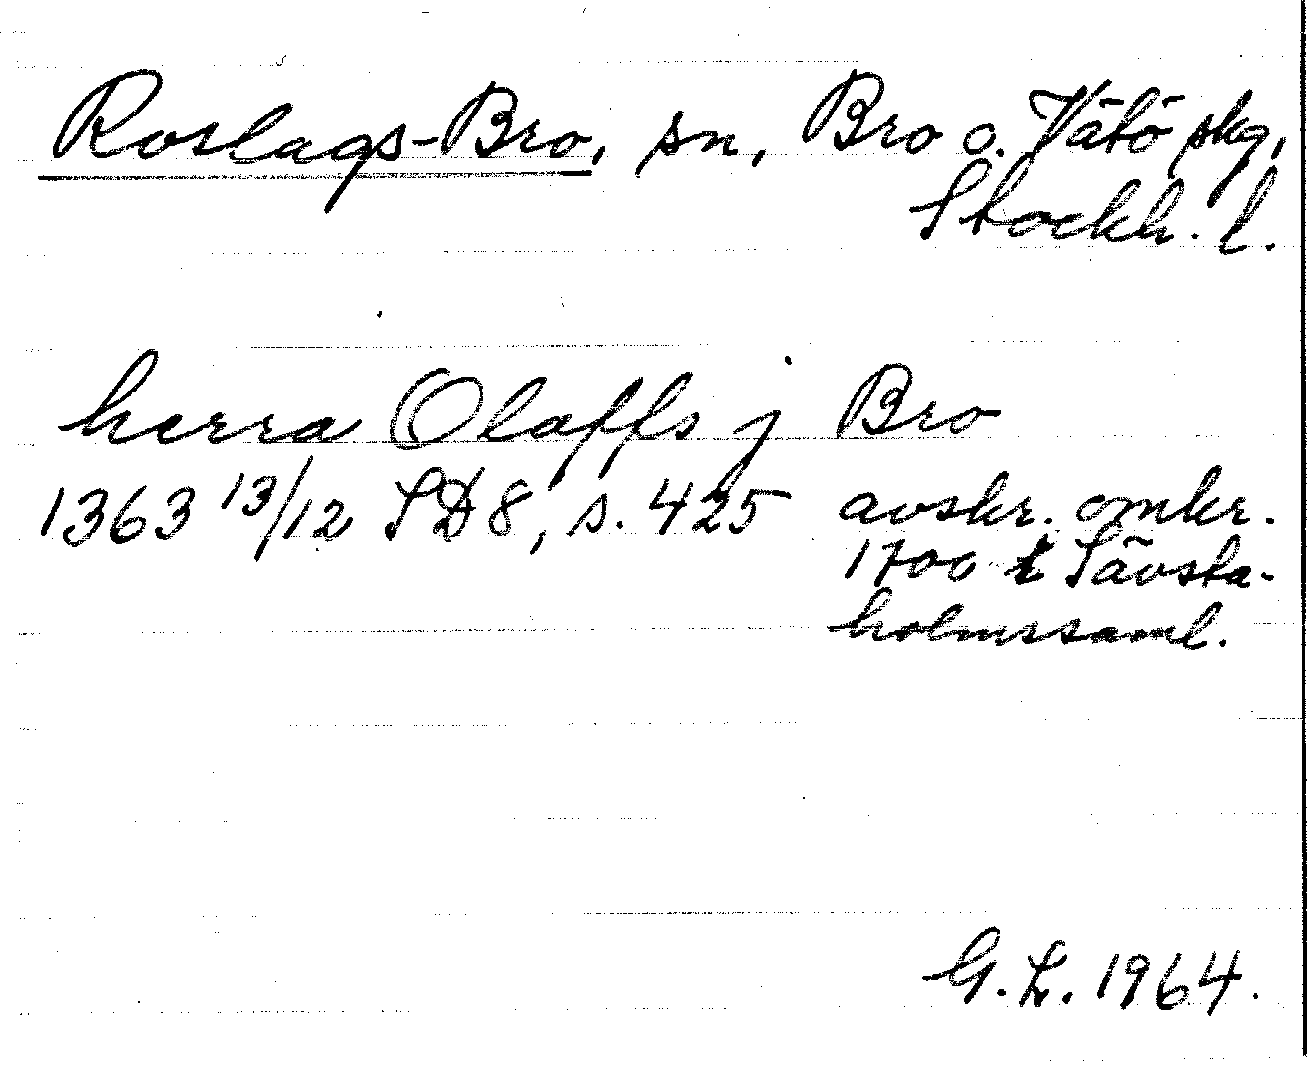 Roslags-Bro, sn, Bro o. Vätö skg,
Stockh. l.
herra Olaffs j Bro
1363 13/12 SD 8, s. 425 avskr. omkr.
1700 i Sävsta-
holmssaml.
G. L. 1964.